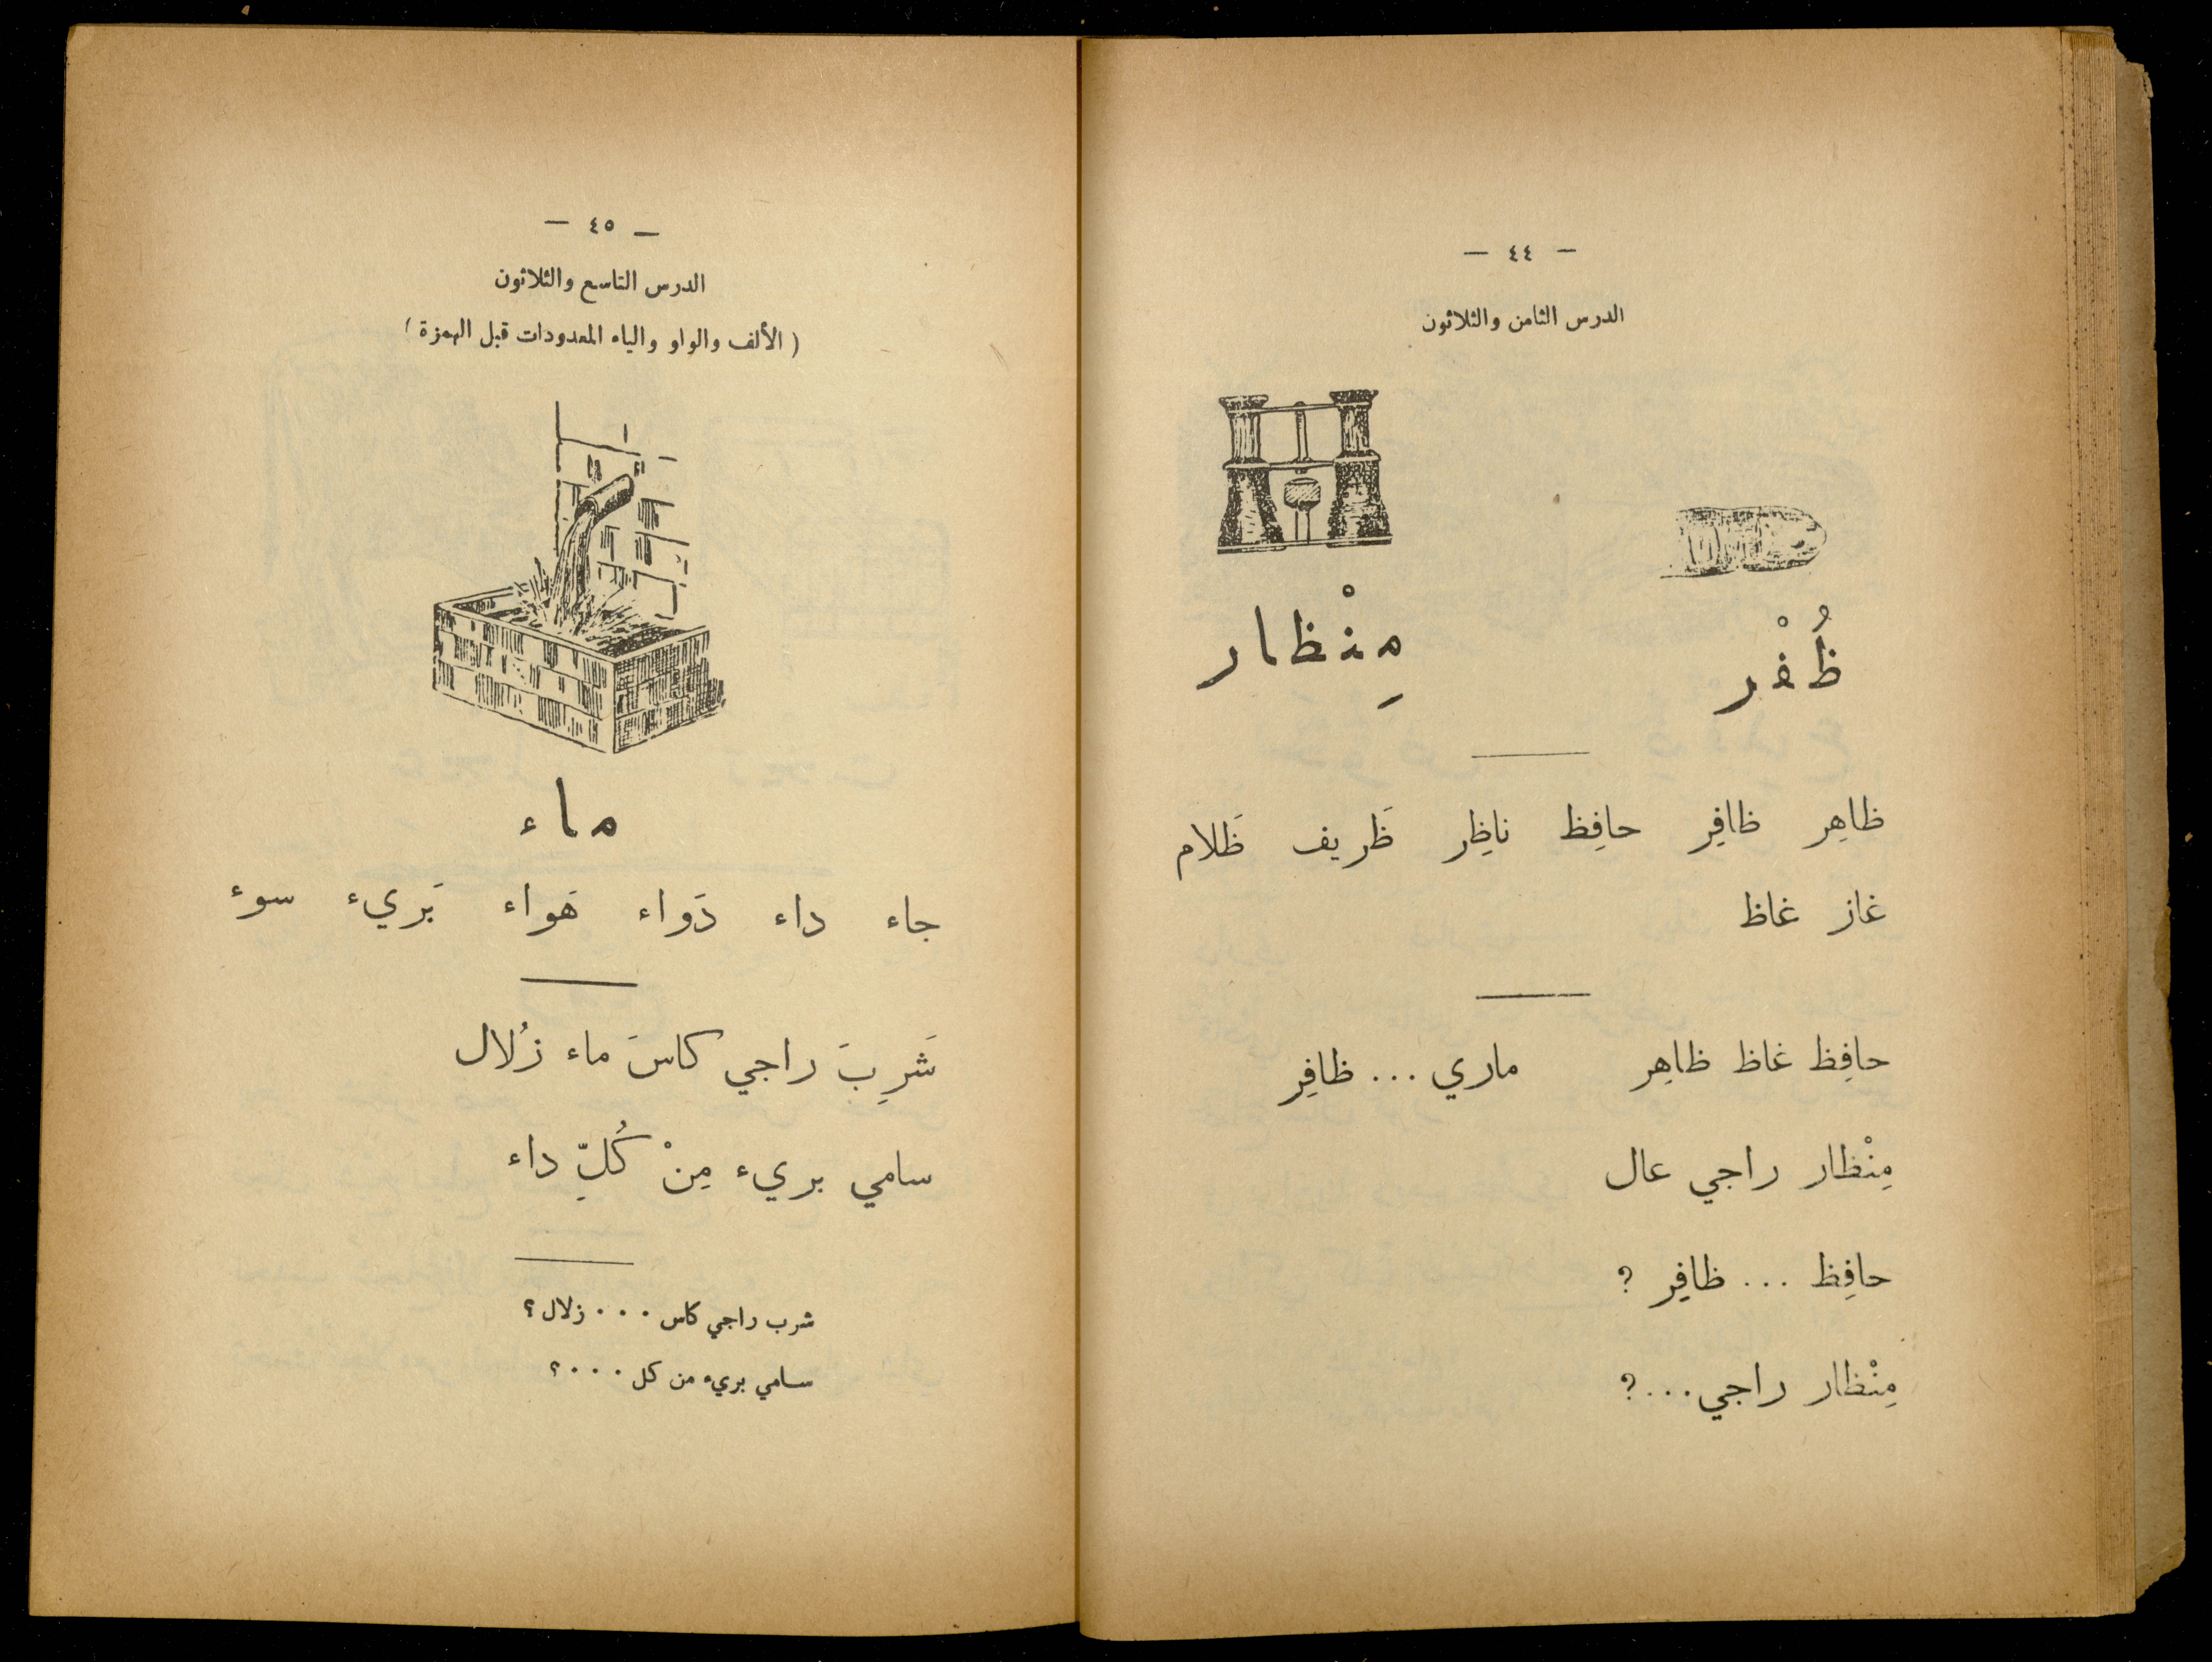 — ٤٤ —
الدرس الثامن والثلاثون
ظُفْر مِنْظار
ظاهِر ظافِر حافِظ ناظِر ظَريف ظَلام
غاز غاظ
حافِظ غاظ ظاهِر ماري ... ظافِر
مِنْظار راجي عال
حافِظ ... ظافِر ؟
مِنْظار راجي ...؟
— ٤٥ —
الدرس التاسع والثلاثون
( الألف والواو والياء الممدودات قبل الهمزة )
ماء
جاء داء دَواء هَواء بَريء سوء
شَرِبَ راجي كاسَ ماء زُلال
سامي بريء مِنْ كُلِّ داء
شرب راجي كاس ... زلال ؟
سامي بريء من كل ... ؟